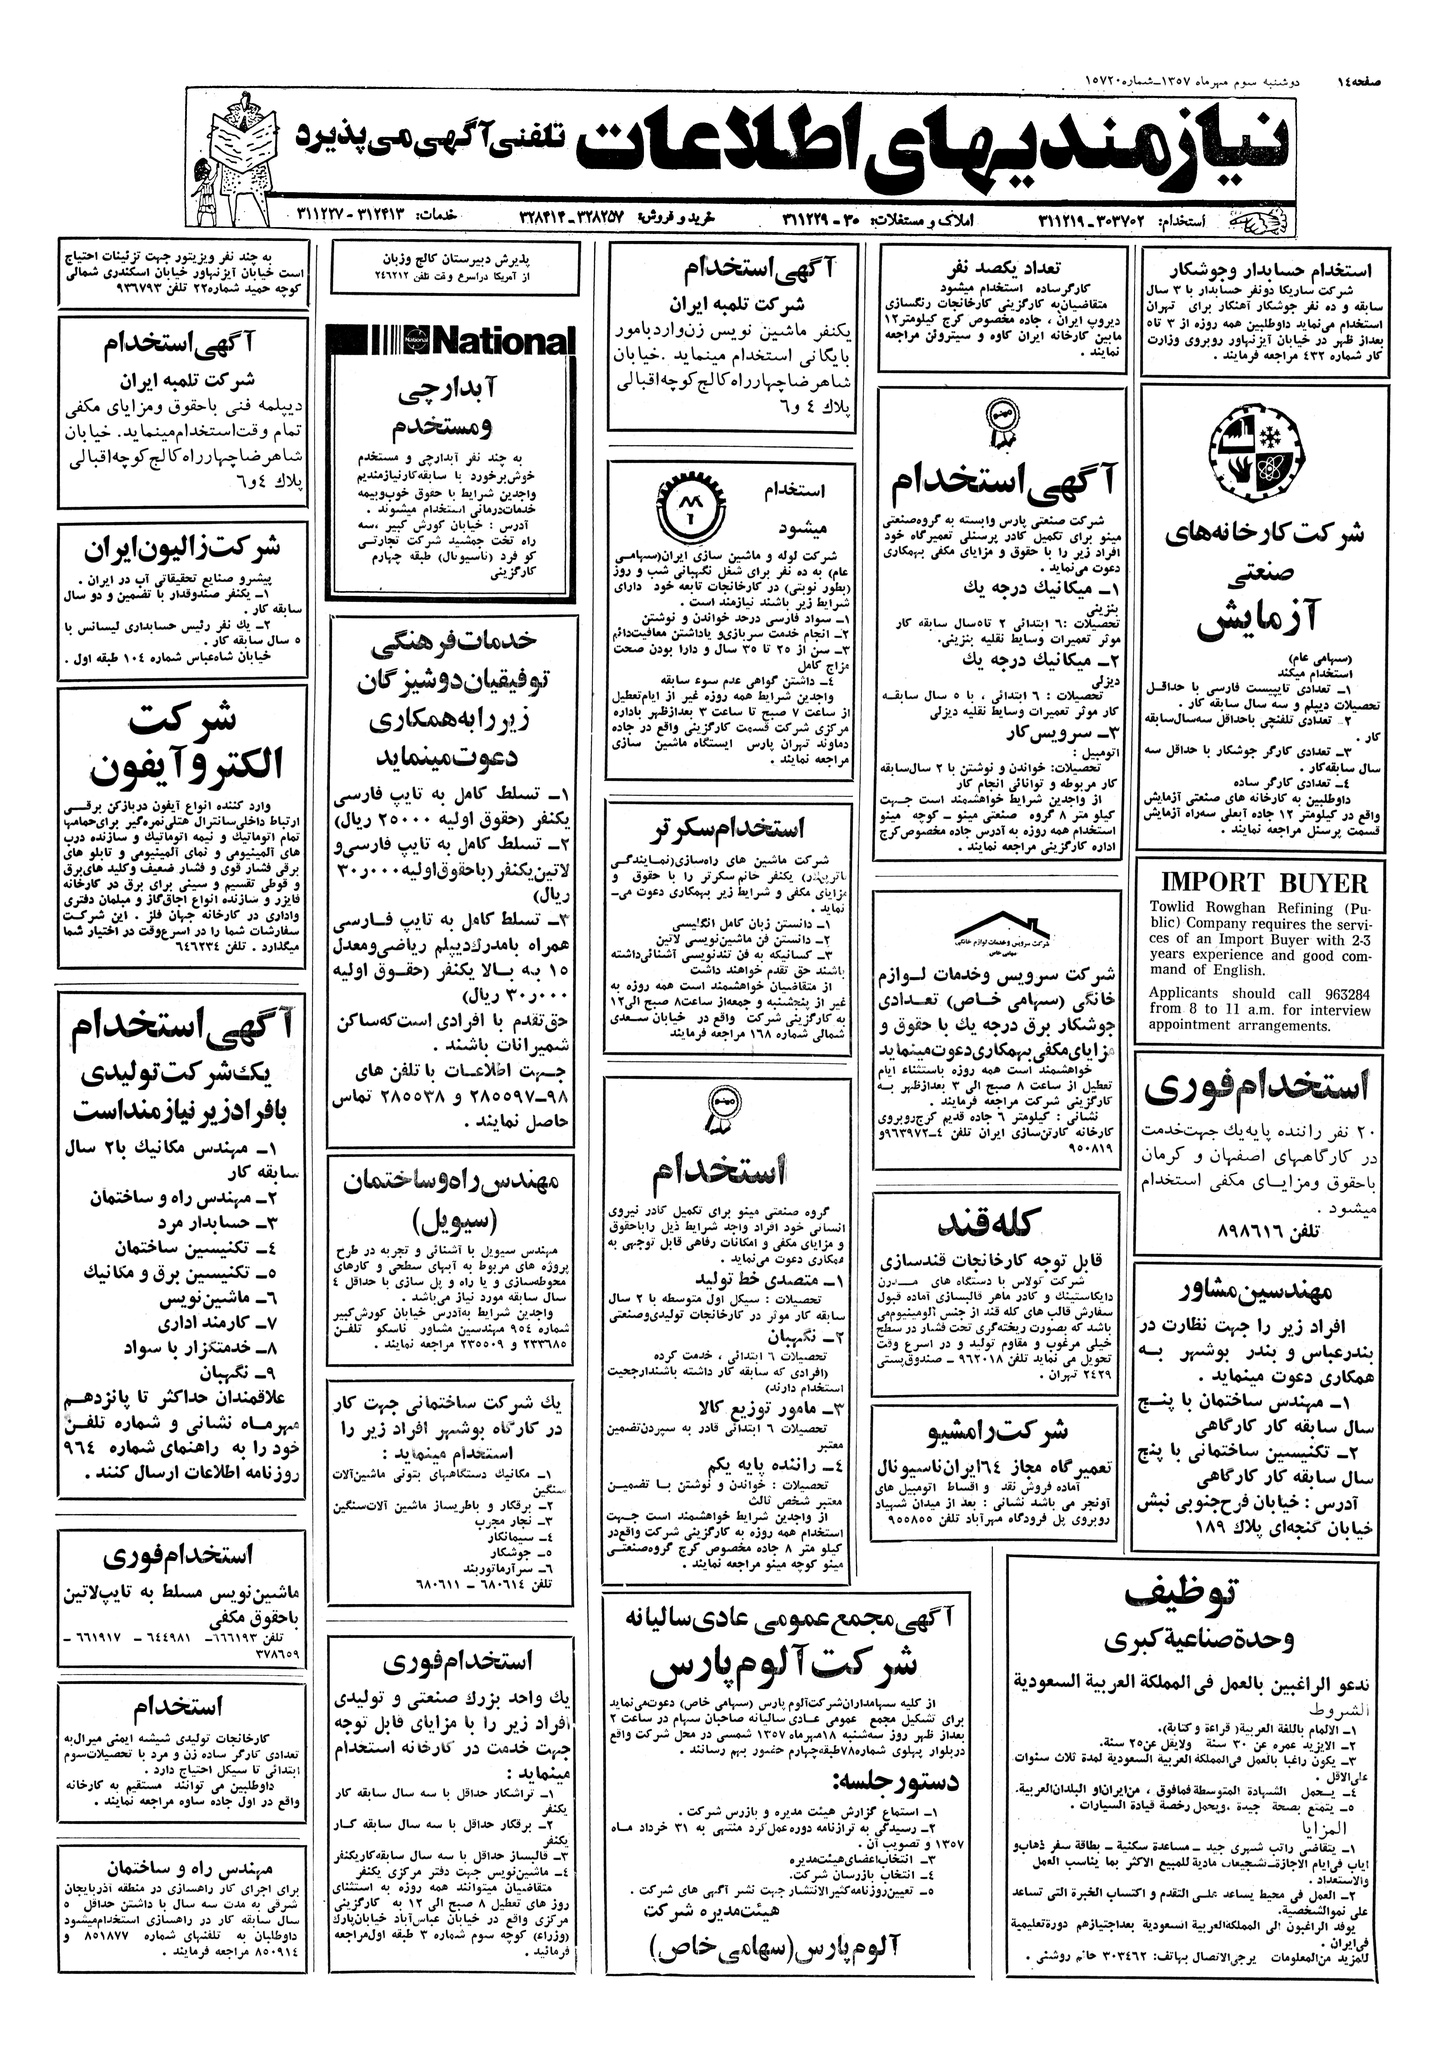 صفحه ۱۴
دوشنبه سوم مهرماه ۱۳۵۷ــ شماره ۱۵۷۲۰
نیازمندیهای اطلاعات تلفنی آگهی می‌پذیرد
استخدام: ۳۰۳۷۰۲ــ۳۱۱۲۱۹ املاک و مستغلات: ۳۰ــ۳۱۱۲۲۹ خرید و فروش: ۳۲۸۲۵۷ــ۳۲۸۴۱۴ خدمات: ۳۱۲۴۱۳ــ۳۱۱۲۲۷
استخدام حسابدار وجوشکار
شرکت ساریکا دونفر حسابدار با ۳ سال
سابقه و ده نفر جوشکار آهنکار برای تهران
استخدام می‌نماید داوطلبین همه روزه از ۳ تا۵
بعداز ظهر در خیابان آیزنهاور روبروی وزارت
کار شماره ۴۳۲ مراجعه فرمایند .
شرکت کارخانه‌های
صنعتی
آزمایش
(سهامی عام)
استخدام میکند
۱ــ تعدادی تایپیست فارسی با حداقل
تحصیلات دیپلم و سه سال سابقه کار .
۲ــ تعدادی تلفنچی باحداقل سه‌سال‌سابقه
کار .
۳ــ تعدادی کارگر جوشکار با حداقل سه
سال سابقه‌کار .
۴ــ تعدادی کارگر ساده
داوطلبین به کارخانه های صنعتی آزمایش
واقع در کیلومتر ۱۲ جاده آبعلی سه‌راه آزمایش
قسمت پرسنل مراجعه نمایند .
IMPORT BUYER
Towlid Rowghan Refining (Pu-
blic) Company requires the servi-
ces of an Import Buyer with 2-3
years experience and good com-
mand of English.
Applicants should call 963284
from 8 to 11 a.m. for interview
appointment arrangements.
استخدام فوری
۲۰ نفر راننده پایه‌یك جهت‌خدمت
در کارگاههای اصفهان و کرمان
باحقوق ومزایای مکفی استخدام
میشود .
تلفن ۸۹۸۶۱۶
مهندسین مشاور
افراد زیر را جهت نظارت در
بندرعباس و بندر بوشهر به
همکاری دعوت مینماید .
۱ــ مهندس ساختمان با پنج
سال سابقه کار کارگاهی
۲ــ تکنیسین ساختمانی با پنج
سال سابقه کار کارگاهی
آدرس : خیابان فرح‌جنوبی نبش
خیابان گنجه‌ای پلاك ۱۸۹
توظیف
وحدة صناعیة کبری
ندعو الراغبین بالعمل فی المملکة العربیة السعودیة
الشروط
۱ــ الالمام باللغة العربیة( قراءة و کتابة).
۲ــ الایزید عمره عن ۳۰ سنة ولایقل عن۲۵ سنة.
۳ــ یکون راغبا بالعمل فی‌المملکة العربیة السعودیة لمدة ثلاث سنوات
علی‌الاقل .
۴ــ یحمل الشهادة المتوسطة فمافوق ، من‌ایران‌او البلدان‌العربیة.
۵ــ یتمتع بصحة جیدة ،ویحمل رخصة قیادة السیارات .
المزایا
۱ــ یتقاضی راتب شهری جید ــ مساعدة سکنیة ــ بطاقة سفر ذهاب‌و
ایاب فی‌ایام الاجازة‌ــ‌تشجیعات مادیة للمبیع الاکثر بما یناسب العمل
والاستعداد .
۲ــ العمل فی محیط یساعد علی التقدم و اکتساب الخبرة التی تساعد
علی نموالشخصیة.
یوفد الراغبون الی المملکةالعربیة السعودیة بعداجتیازهم دورةتعلیمیة
فی‌ایران .
للمزید من‌المعلومات یرجی‌الاتصال بهاتف: ۳۰۳۴۶۲ خانم روشنی .
تعداد یکصد نفر
کارگرساده استخدام میشود
متقاضیان‌به کارگزینی کارخانجات رنگسازی
دیروپ ایران ، جاده مخصوص کرج کیلومتر۱۲
مابین کارخانه ایران کاوه و سیتروئن مراجعه
نمایند .
مینو
آگهی استخدام
شرکت صنعتی پارس وابسته به گروه‌صنعتی
مینو برای تکمیل کادر پرسنلی تعمیرگاه خود
افراد زیر را با حقوق و مزایای مکفی بهمکاری
دعوت می‌نماید .
۱ــ میکانیك درجه یك
بنزینی
تحصیلات :۶ ابتدائی ۲ تا۵سال سابقه کار
موثر تعمیرات وسایط نقلیه بنزینی.
۲ــ میکانیك درجه یك
دیزلی
تحصیلات : ۶ ابتدائی ، با ۵ سال سابقـه
کار موثر تعمیرات وسایط نقلیه دیزلی
۳ــ سرویس‌کار
اتومبیل :
تحصیلات: خواندن و نوشتن با ۲ سال‌سابقه
کار مربوطه و توانائی انجام کار
از واجدین شرایط خواهشمند است جهت
کیلو متر ۸ گروه صنعتی مینو ــ کوچه مینو
استخدام همه روزه به آدرس جاده مخصوص‌کرج
اداره کارگزینی مراجعه نمایند .
شرکت سرویس و خدمات لوازم خانگی
سهامی خاص
شرکت سرویس وخدمات لـوازم
خانگی (سهامی خـاص) تعـدادی
جوشکار برق درجه یك با حقوق و
مزایای‌مکفی بهمکاری دعوت‌مینماید
خواهشمند است همه روزه باستثناء ایام
تعطیل از ساعت ۸ صبح الی ۳ بعدازظهر به
کارگزینی شرکت مراجعه فرمایند .
نشانی : کیلومتر ۶ جاده قدیم کرج‌روبروی
کارخانه کارتن‌سازی ایران تلفن ۴ــ۹۶۳۹۷۲و
۹۵۰۸۱۹
کله قند
قابل توجه کارخانجات قندسازی
شرکت تولاس با دستگاه های مـدرن
دایکاستینك و کادر ماهر قالبسازی آماده قبول
سفارش قالب های کله قند از جنس آلومینیوم‌می
باشد که بصورت ریخته‌گری تحت فشار در سطح
خیلی مرغوب و مقاوم تولید و در اسرع وقت
تحویل می نماید تلفن ۹۶۲۰۱۸ ــ صندوق‌پستی
۲۴۲۹ تهران .
شرکت رامشیو
تعمیرگاه مجاز ۶۴ ایران‌ناسیونال
آماده فروش نقد و اقساط اتومبیل های
آونجر می باشد نشانی : بعد از میدان شهیاد
روبروی پل فرودگاه مهرآباد تلفن ۹۵۵۸۵۵
آگهی استخدام
شرکت تلمبه ایران
یکنفر ماشین نویس زن‌وارد‌بامور
بایگانی استخدام مینماید .خیابان
شاهرضاچهارراه‌کالج‌کوچه‌اقبالی
پلاك ۴ و۶
استخدام
میشود
شرکت لوله و ماشین سازی ایران(سهامی
عام) به ده نفر برای شغل نگهبانی شب و روز
(بطور نوبتی) در کارخانجات تابعه خود دارای
شرایط زیر باشند نیازمند است .
۱ــ سواد فارسی درحد خواندن و نوشتن
۲ــ انجام خدمت سربازی‌و یاداشتن معافیت‌دائم
۳ــ سن از ۲۵ تا ۳۵ سال و دارا بودن صحت
مزاج کامل
۴ــ داشتن گواهی عدم سوء سابقه
واجدین شرایط همه روزه غیر از ایام‌تعطیل
از ساعت ۷ صبح تا ساعت ۳ بعدازظهر باداره
مرکزی شرکت قسمت کارگزینی واقع در جاده
دماوند تهران پارس ایستگاه ماشین سازی
مراجعه نمایند .
استخدام سکرتر
شرکت ماشین های راه‌سازی(نمایندگی
کاترپیلار) یکنفر خانم سکرتر را با حقوق و
مزایای مکفی و شرایط زیر بهمکاری دعوت می‌ــ
نماید .
۱ــ دانستن زبان کامل انگلیسی
۲ــ دانستن فن ماشین‌نویسی لاتین
۳ــ کسانیکه به فن تندنویسی آشنائی‌داشته
باشند حق تقدم خواهند داشت
از متقاضیان خواهشمند است همه روزه به
غیر از پنجشنبه و جمعه‌از ساعت۸ صبح الی۱۲
به کارگزینی شرکت واقع در خیابان سعدی
شمالی شماره ۱۶۸ مراجعه فرمایند
مینو
استخدام
گروه صنعتی مینو برای تکمیل کادر نیروی
انسانی خود افراد واجد شرایط ذیل راباحقوق
و مزایای مکفی و امکانات رفاهی قابل توجهی به
همکاری دعوت می‌نماید .
۱ــ متصدی خط تولید
تحصیلات : سیکل اول متوسطه با ۲ سال
سابقه کار موثر در کارخانجات تولیدی‌وصنعتی
۲ــ نگهبان
تحصیلات ۶ ابتدائی ، خدمت کرده
(افرادی که سابقه کار داشته باشند‌ارجحیت
استخدام دارند)
۳ــ مامور توزیع کالا
تحصیلات ۶ ابتدائی قادر به سپردن‌تضمین
معتبر
۴ــ راننده پایه یکم
تحصیلات : خواندن و نوشتن بـا تضمیـن
معتبر شخص ثالث
از واجدین شرایط خواهشمند است جهت
استخدام همه روزه به کارگزینی شرکت واقع‌در
کیلو متر ۸ جاده مخصوص کرج گروه‌صنعتی
مینو کوچه مینو مراجعه نمایند .
آگهی مجمع عمومی عادی سالیانه
شرکت آلوم پارس
از کلیه سهامداران شرکت‌آلوم پارس (سهامی خاص) دعوت‌می‌نماید
برای تشکیل مجمع عمومی عـادی سالیانه صاحبان سهام در ساعت ۲
بعداز ظهر روز سه‌شنبه ۱۸مهرماه ۱۳۵۷ شمسی در محل شرکت واقع
دربلوار پهلوی شماره۷۸طبقه‌چهارم حضور بهم رسانند .
دستور جلسه:
۱ــ استماع گزارش هیئت مدیره و بازرس شرکت .
۲ــ رسیدگی به ترازنامه دوره‌عمل‌کرد منتهی به ۳۱ خرداد ماه
۱۳۵۷ و تصویب آن .
۳ــ انتخاب‌اعضای‌هیئت‌مدیره
۴ــ انتخاب بازرسان شرکت.
۵ــ تعیین‌روزنامه‌کثیرالانتشار جهت نشر آگهی های شرکت .
هیئت‌مدیره شرکت
آلوم پارس (سهامی خاص)
پذیرش دبیرستان کالج وزبان
از آمریکا دراسرع وقت تلفن ۲۴۶۲۱۲
National
National
آبدارچی
ومستخدم
به چند نفر آبدارچی و مستخدم
خوش‌برخورد با سابقه‌کارنیازمندیم
واجدین شرایط با حقوق خوب‌وبیمه
خدمات‌درمانی استخدام میشوند .
آدرس : خیابان کورش کبیر ،سه
راه تخت جمشید شرکت تجارتی
کو فرد (ناسیونال) طبقه چهارم
کارگزینی
خدمات فرهنگی
توفیقیان دوشیزگان
زیر را به همکاری
دعوت مینماید
۱ــ تسلط کامل به تایپ فارسی
یکنفر (حقوق اولیه ۲۵۰۰۰ ریال)
۲ــ تسلط کامل به تایپ فارسی‌و
لاتین‌یکنفر (باحقوق‌اولیه ۳۰٫۰۰۰
ریال)
۳ــ تسلط کامل به تایپ فـارسی
همراه بامدرك‌دیپلم ریاضی‌ومعدل
۱۵ بـه بـالا یکنفـر (حقـوق اولیه
۳۰٫۰۰۰ ریال)
حق‌تقدم با افرادی است‌که‌ساکن
شمیرانات باشند .
جـهت اطلاعـات با تلفن های
۹۸ــ۲۸۵۵۹۷ و ۲۸۵۵۳۸ تماس
حاصل نمایند .
مهندس راه وساختمان
(سیویل)
مهندس سیویل با آشنائی و تجربه در طرح
پروژه های مربوط به آبهای سطحی و کارهای
محوطه‌سازی و یا راه و پل سازی با حداقل ۴
سال سابقه مورد نیاز می‌باشد .
واجدین شرایط به‌آدرس خیابان کورش‌کبیر
شماره ۹۵۴ مهندسین مشاور تاسکو تلفـن
۲۳۳۶۸۵ و ۲۳۵۵۰۹ مراجعه نمایند .
یك شرکت ساختمانی جهت کار
در کارگاه بوشهر افراد زیر را
استخدام مینماید :
۱ــ مکانیك دستگاههای بتونی ماشین‌آلات
سنگین
۲ــ برقکار و باطریساز ماشین آلات‌سنگین
۳ــ نجار مجرب
۴ــ سیمانکار
۵ــ جوشکار
۶ــ سرآرماتوربند
تلفن ۶۸۰۶۱۴ ــ ۶۸۰۶۱۱
استخدام فوری
یك واحد بزرك صنعتی و تولیدی
افراد زیر را با مزایای قابل توجه
جهت خدمت در کارخانه استخدام
مینماید :
۱ــ تراشکار حداقل با سه سال سابقه کار
یکنفر
۲ــ برقکار حداقل با سه سال سابقه کـار
یکنفر
۳ــ قالبساز حداقل با سه سال سابقه کاریکنفر
۴ــ ماشین‌نویس جهت دفتر مرکزی یکنفر
متقاضیان میتوانند همه روزه به استثنای
روز های تعطیل ۸ صبح الی ۱۲ به کارگزینی
مرکزی واقع در خیابان عباس‌آباد خیابان‌پارك
(وزراء) کوچه سوم شماره ۳ طبقه اول‌مراجعه
فرمایند .
به چند نفر ویزیتور جهت تزئینات احتیاج
است خیابان آیزنهاور خیابان اسکندری شمالی
کوچه حمید شماره۲۲ تلفن ۹۳۶۷۹۳
آگهی استخدام
شرکت تلمبه ایران
دیپلمه فنی باحقوق ومزایای مکفی
تمام وقت‌استخدام‌مینماید. خیابان
شاهرضاچهارراه‌کالج‌کوچه‌اقبالی
پلاك ۴و۶
شرکت زالیون ایران
پیشرو صنایع تحقیقاتی آب در ایران .
۱ــ یکنفر صندوقدار با تضمین و دو سال
سابقه کار .
۲ــ یك نفر رئیس حسابداری لیسانس با
۵ سال سابقه کار .
خیابان شاه‌عباس شماره ۱۰۴ طبقه اول .
شرکت
الکتروآیفون
وارد کننده انواع آیفون دربازکن برقـی
ارتباط داخلی‌سانترال هتلی‌نمره‌گیر برای‌حمامها
تمام اتوماتیك و نیمه اتوماتیك و سازنده درب
های آلمینیومی و نمای آلمینیومی و تابلو های
برقی فشار قوی و فشار ضعیف وکلید های‌برق
و قوطی تقسیم و سینی برای برق در کارخانه
فایزر و سازنده انواع اجاق‌گاز و مبلمان دفتری
واداری در کارخانه جهان فلز . این شرکت
سفارشات شما را در اسرع‌وقت در اختیار شما
میگذارد . تلفن ۶۴۶۲۳۴
آگهی استخدام
یك شرکت تولیدی
بافراد زیر نیازمند است
۱ــ مهندس مکانیك با۲ سال
سابقه کار
۲ــ مهندس راه و ساختمان
۳ــ حسابدار مرد
۴ــ تکنیسین ساختمان
۵ــ تکنیسین برق و مکانیك
۶ــ ماشین‌نویس
۷ــ کارمند اداری
۸ــ خدمتگزار با سواد
۹ــ نگهبان
علاقمندان حداکثر تا پانزدهم
مهرماه نشانی و شماره تلفـن
خود را به راهنمای شماره ۹۶۴
روزنامه اطلاعات ارسال کنند .
استخدام فوری
ماشین‌نویس مسلط به تایپ‌لاتین
باحقوق مکفی
تلفن ۶۶۶۱۹۳ــ ۶۴۴۹۸۱ ــ ۶۶۱۹۱۷ ــ
۳۷۸۶۵۹
استخدام
کارخانجات تولیدی شیشه ایمنی میرال‌به
تعدادی کارگر ساده زن و مرد با تحصیلات‌سوم
ابتدائی تا سیکل احتیاج دارد .
داوطلبین می توانند مستقیم به کارخانه
واقع در اول جاده ساوه مراجعه نمایند .
مهندس راه و ساختمان
برای اجرای کار راهسازی در منطقه آذربایجان
شرقی به مدت سه سال با داشتن حداقل ۵
سال سابقه کار در راهسازی استخدام‌میشود
داوطلبان به تلفنهای شماره ۸۵۱۸۷۷ و
۸۵۰۹۱۴ مراجعه فرمایند .